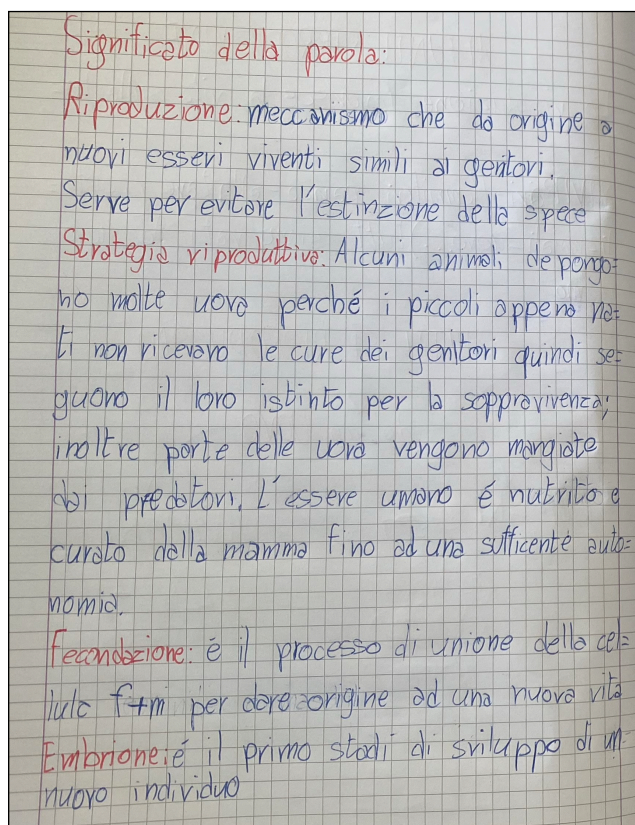 Significato della parola:
Riproduzione: meccanismo che da origine a
nuovi esseri viventi simili ai genitori.
Serve per evitare l'estinzione della spece
Strategia riproduttiva: Alcuni animali depongo=
no molte uova perché i piccoli appena na=
ti non ricevano le cure dei genitori quindi se=
guono il loro istinto per la soppravivenza;
inoltre parte delle uova vengono mangiate
dai predatori. L'essere umano é nutrito e
curato dalla mamma fino ad una sufficente auto=
nomia.
Fecondazione: é il processo di unione della cel=
lula f+m per dare origine ad una nuova vita
Embrione: é il primo stadi di sviluppo di un
nuovo individuo